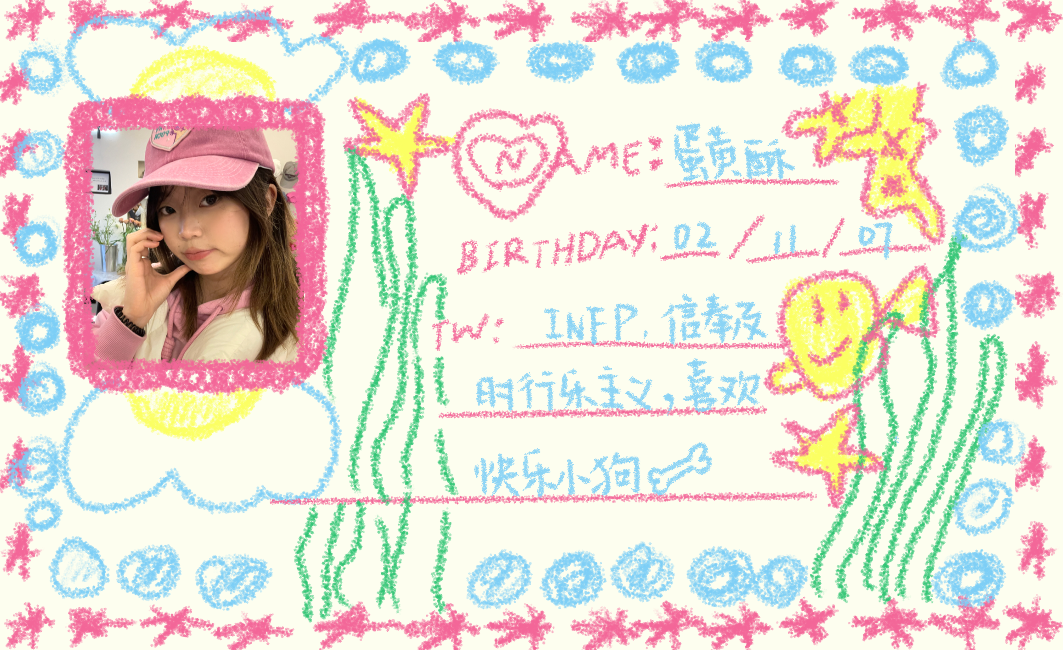 NAME: 蛋黄酥
BIRTHDAY: 02/11/07
TW: INFP, 信奉及
时行乐主义,喜欢
快乐小狗